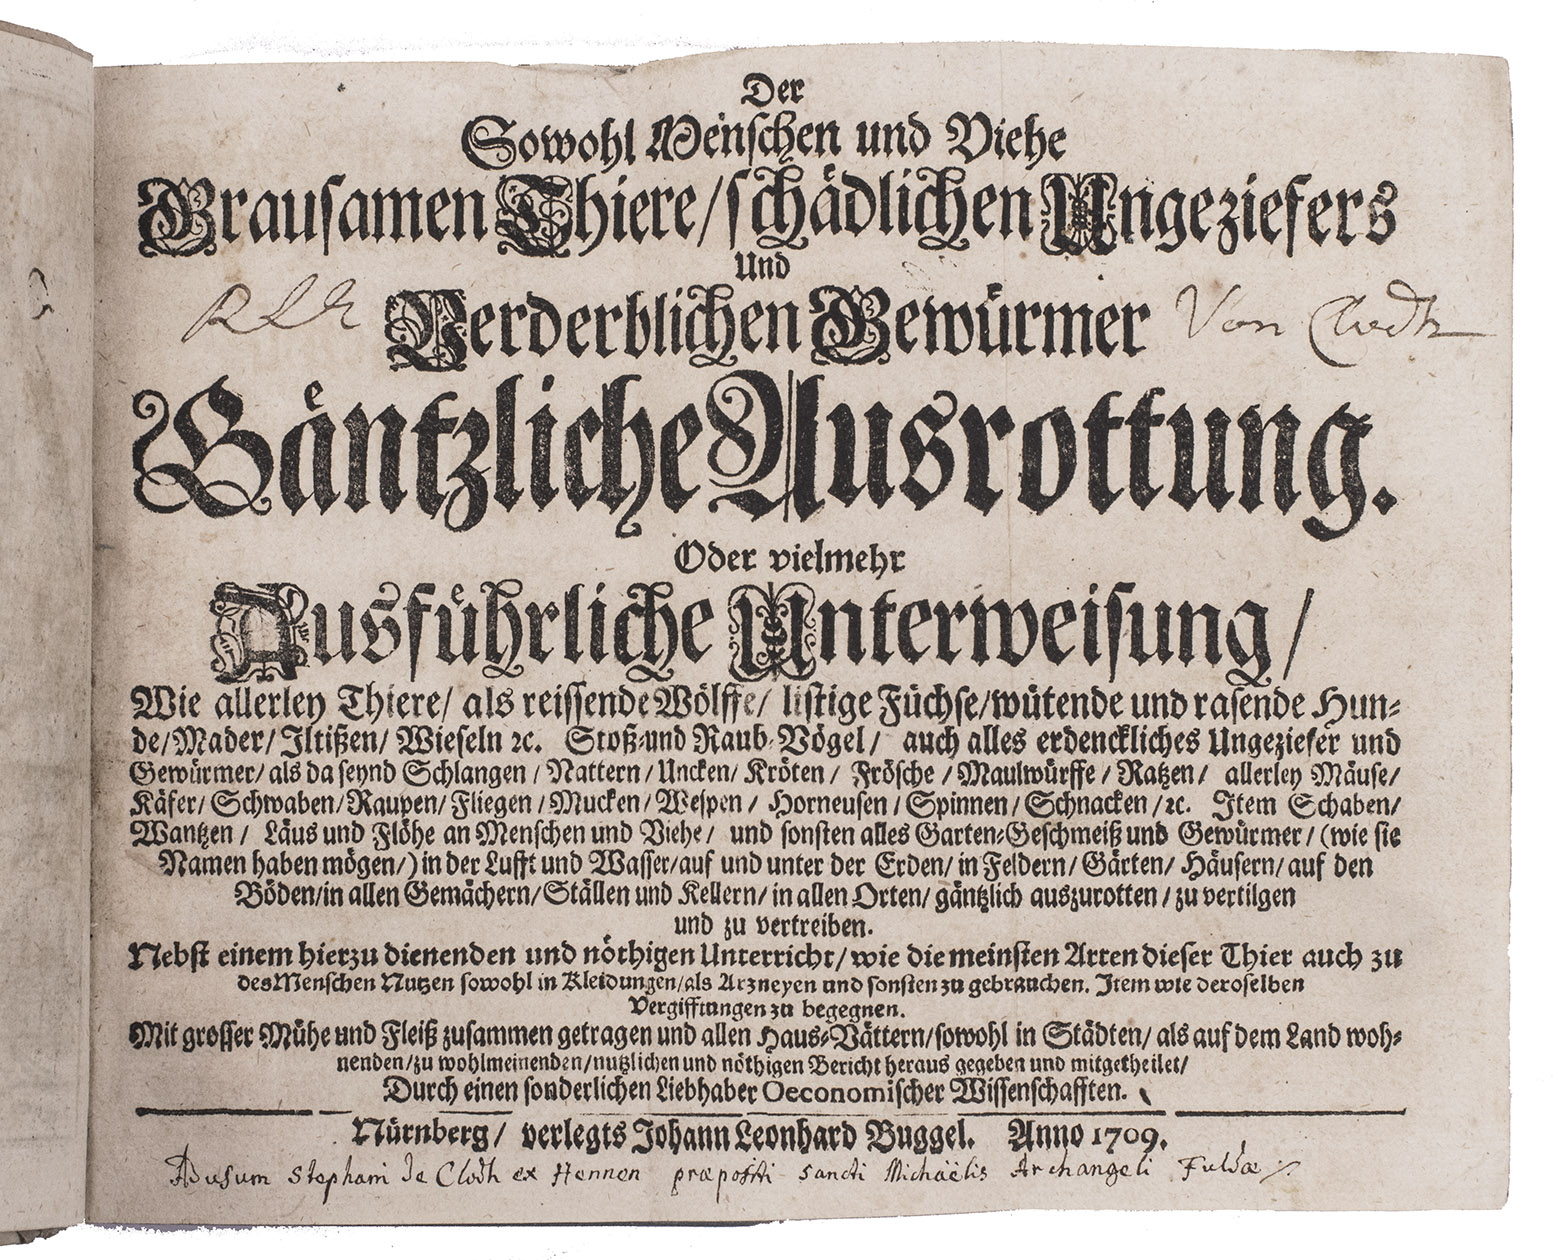 Der
Sowohl Menschen und Viehe
Grausamen Thiere/schädlichen Ungeziefers
Und
Verderblichen Gewürmer
Von Clodh
Gäntzliche Ausrottung.
Oder vielmehr
Ausführliche Unterweisung/
Wie allerley Thiere/ als reissende Wölffe/ listige Füchse/wütende und rasende Hun-
de/Mader/Iltißen/ Wieseln ꝛc. Stoß-und Raub-Vögel/ auch alles erdenckliches Ungeziefer und
Gewürmer/ als da seynd Schlangen/ Nattern/ Uncken/ Kröten/ Frösche/ Maulwürffe/ Ratzen/ allerley Mäuse/
Käfer/ Schwaben/ Raupen/ Fliegen/ Mucken/ Wespen/ Horneusen/ Spinnen/ Schnacken/ ꝛc. Item Schaben/
Wantzen/ Läus und Flöhe an Menschen und Viehe/ und sonsten alles Garten-Geschmeiß und Gewürmer/ (wie sie
Namen haben mögen/) in der Lufft und Wasser/auf und unter der Erden/ in Feldern/ Gärten/ Häusern/ auf den
Böden/in allen Gemächern/ Ställen und Kellern/ in allen Orten/ gäntzlich auszurotten/ zu vertilgen
und zu vertreiben.
Nebst einem hierzu dienenden und nöthigen Unterricht/ wie die meinsten Arten dieser Thier auch zu
des Menschen Nutzen sowohl in Kleidungen/als Arzneyen und sonsten zu gebrauchen. Item wie deroselben
Vergifftungen zu begegnen.
Mit grosser Mühe und Fleiß zusammen getragen und allen Haus-Vättern/sowohl in Städten/ als auf dem Land woh-
nenden/zu wohlmeinenden/nutzlichen und nöthigen Bericht heraus gegeben und mitgetheilet/
Durch einen sonderlichen Liebhaber Oeconomischer Wissenschafften.
Nürnberg/ verlegts Johann Leonhard Buggel. Anno 1709.
Ad usum Stephani de Clodh ex Hennen præpositi sancti Michaëlis Archangeli Fuldæ